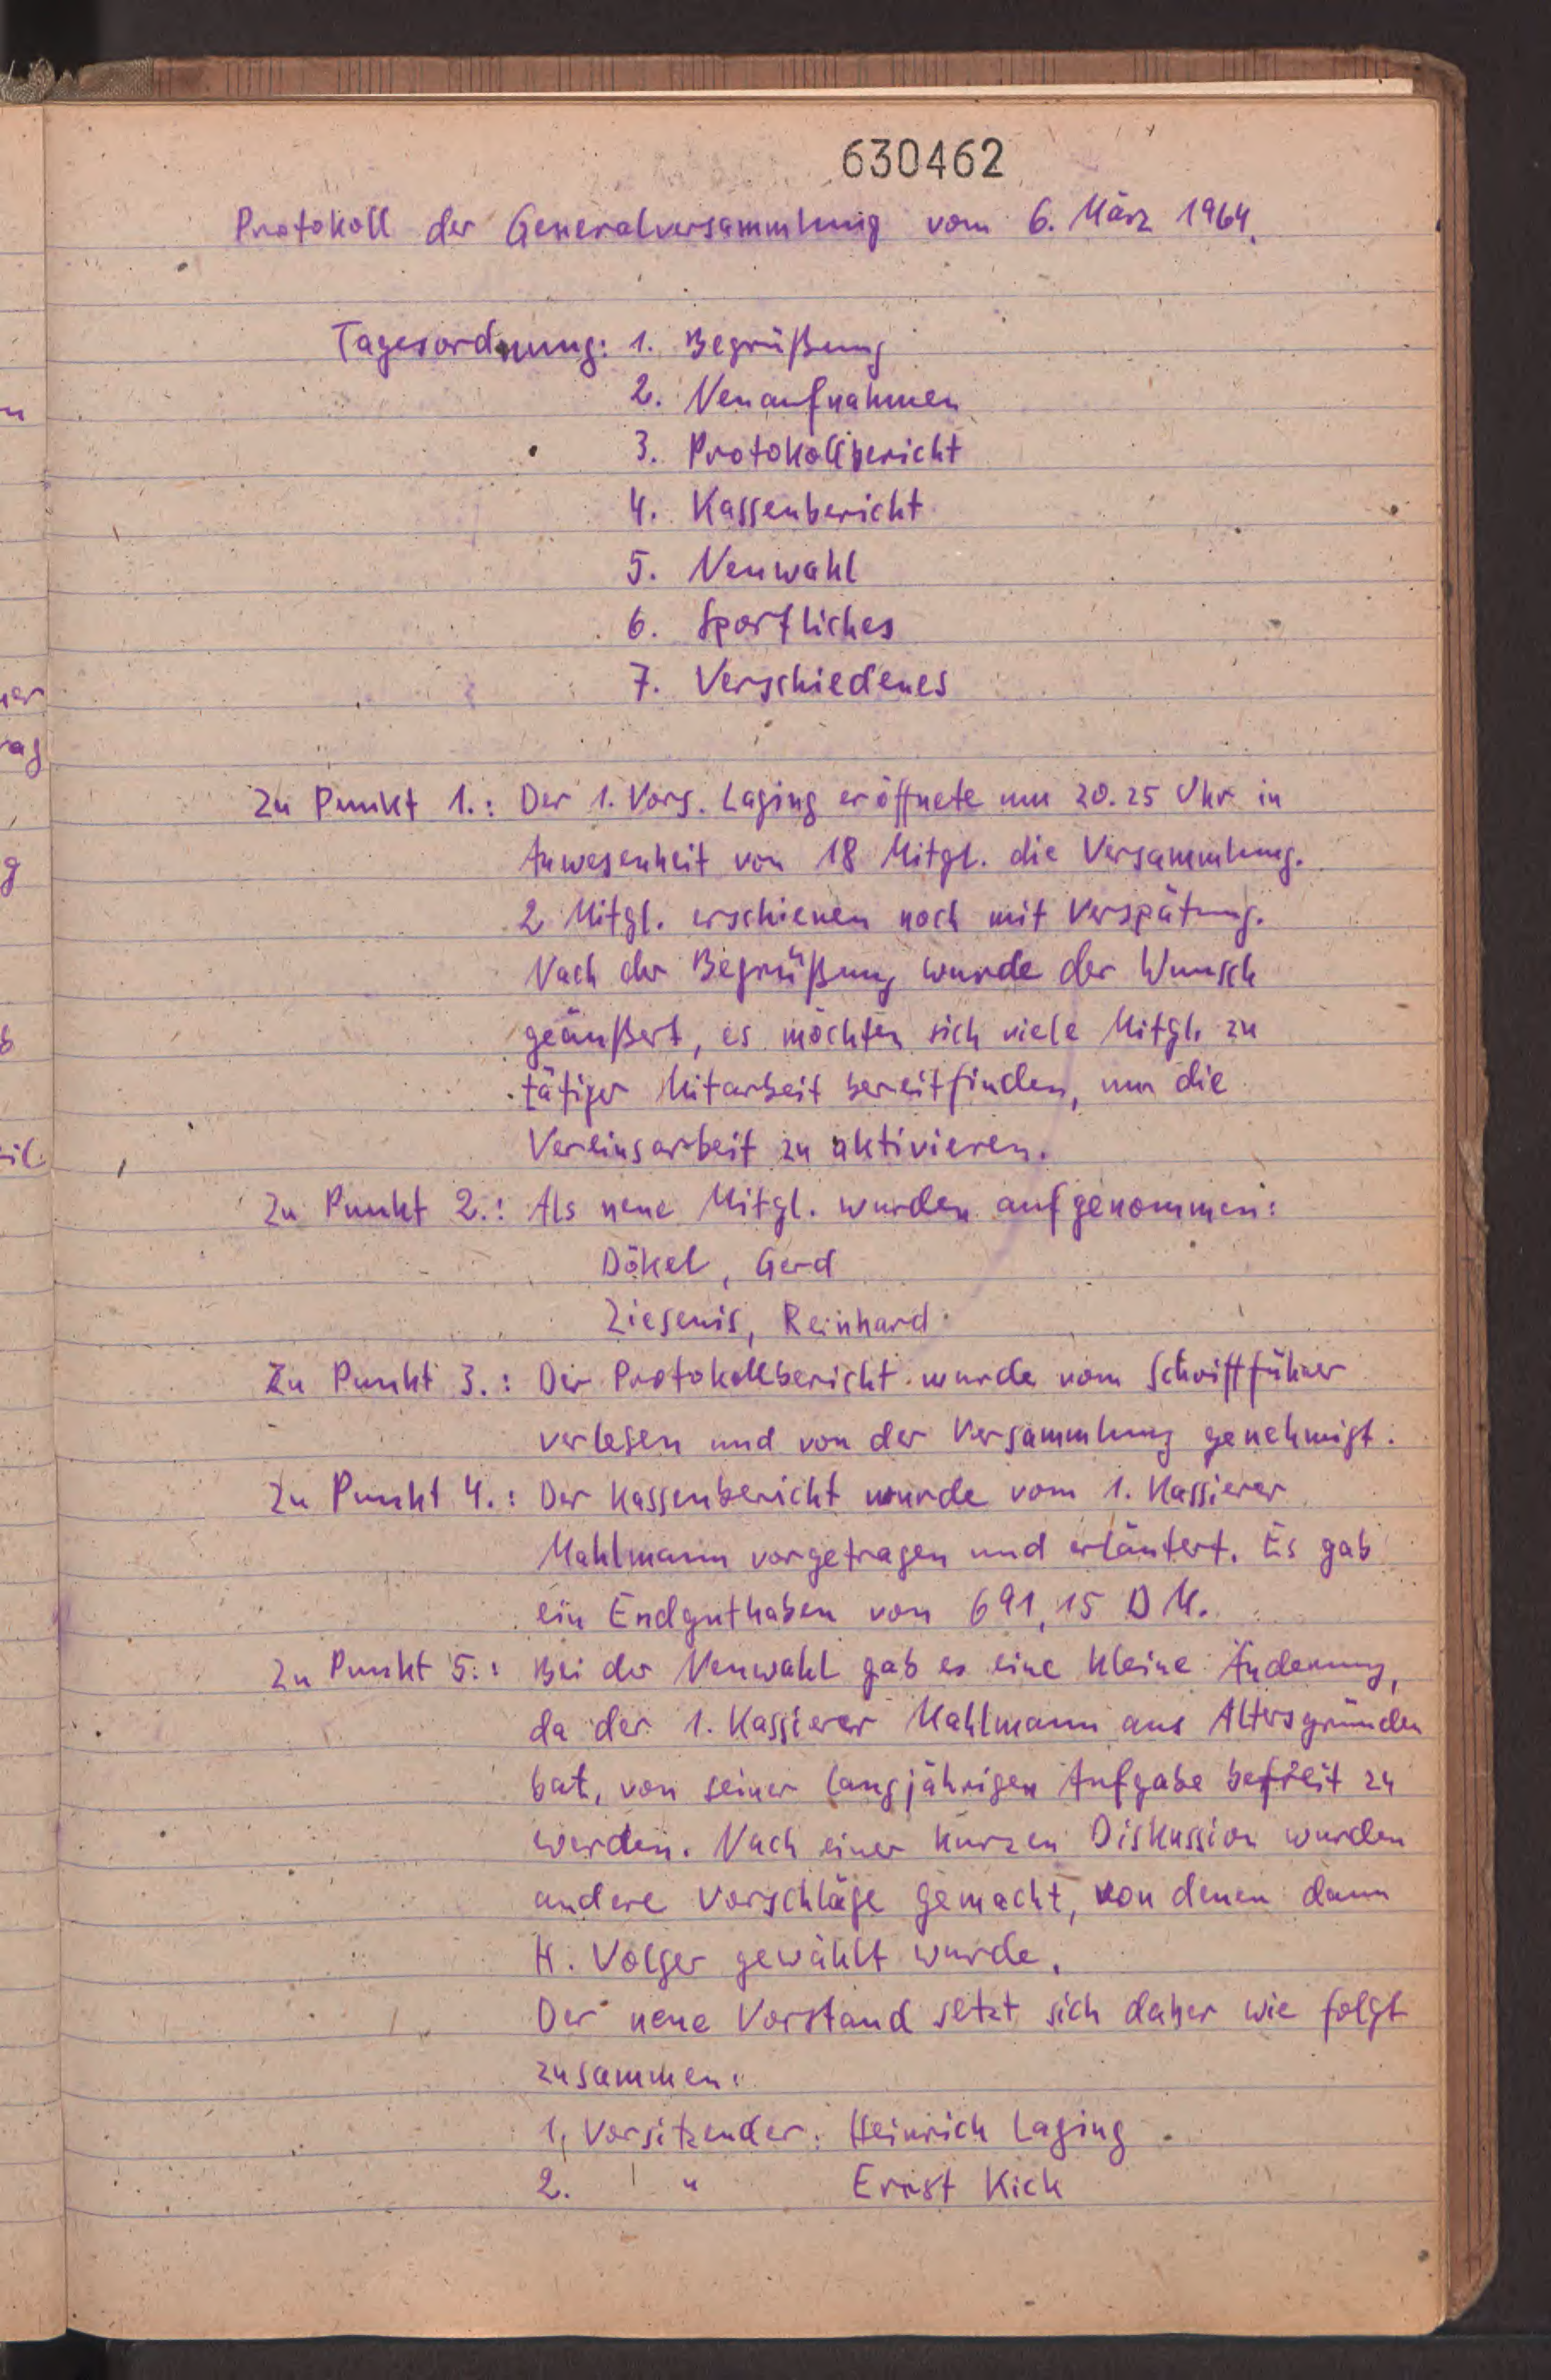 630462
Protokoll der Generalversammlung vom 6. März 1964.
Tagesordnung: 1. Begrüßung
2. Neuaufnahmen
3. Protokollbericht
4. Kassenbericht
5. Neuwahl
6. Sportliches
7. Verschiedenes
Zu Punkt 1.: Der 1. Vors. Laging eröffnete um 20.25 Uhr in
Anwesenheit von 18 Mitgl. die Versammlung.
2 Mitgl. erschienen noch mit Verspätung.
Nach der Begrüßung wurde der Wunsch
geäußert, es möchten sich viele Mitgl. zu
tätiger Mitarbeit bereitfinden, um die
Vereinsarbeit zu aktivieren.
Zu Punkt 2.: Als neue Mitgl. wurden aufgenommen:
Dökel, Gerd
Ziesenis, Reinhard
Zu Punkt 3.: Der Protokollbericht wurde vom Schriftführer
verlesen und von der Versammlung genehmigt.
Zu Punkt 4.: Der Kassenbericht wurde vom 1. Kassierer
Mahlmann vorgetragen und erläutert. Es gab
ein Endguthaben von 691,15 DM.
Zu Punkt 5.: Bei der Neuwahl gab es eine kleine Änderung,
da der 1. Kassierer Mahlmann aus Altersgründen
bat, von seiner langjährigen Aufgabe befreit zu
werden. Nach einer kurzen Diskussion wurden
andere Vorschläge gemacht, von denen dann
H. Volger gewählt wurde.
Der neue Vorstand setzt sich daher wie folgt
zusammen:
1. Vorsitzender: Heinrich Laging
2. " Ernst Kick